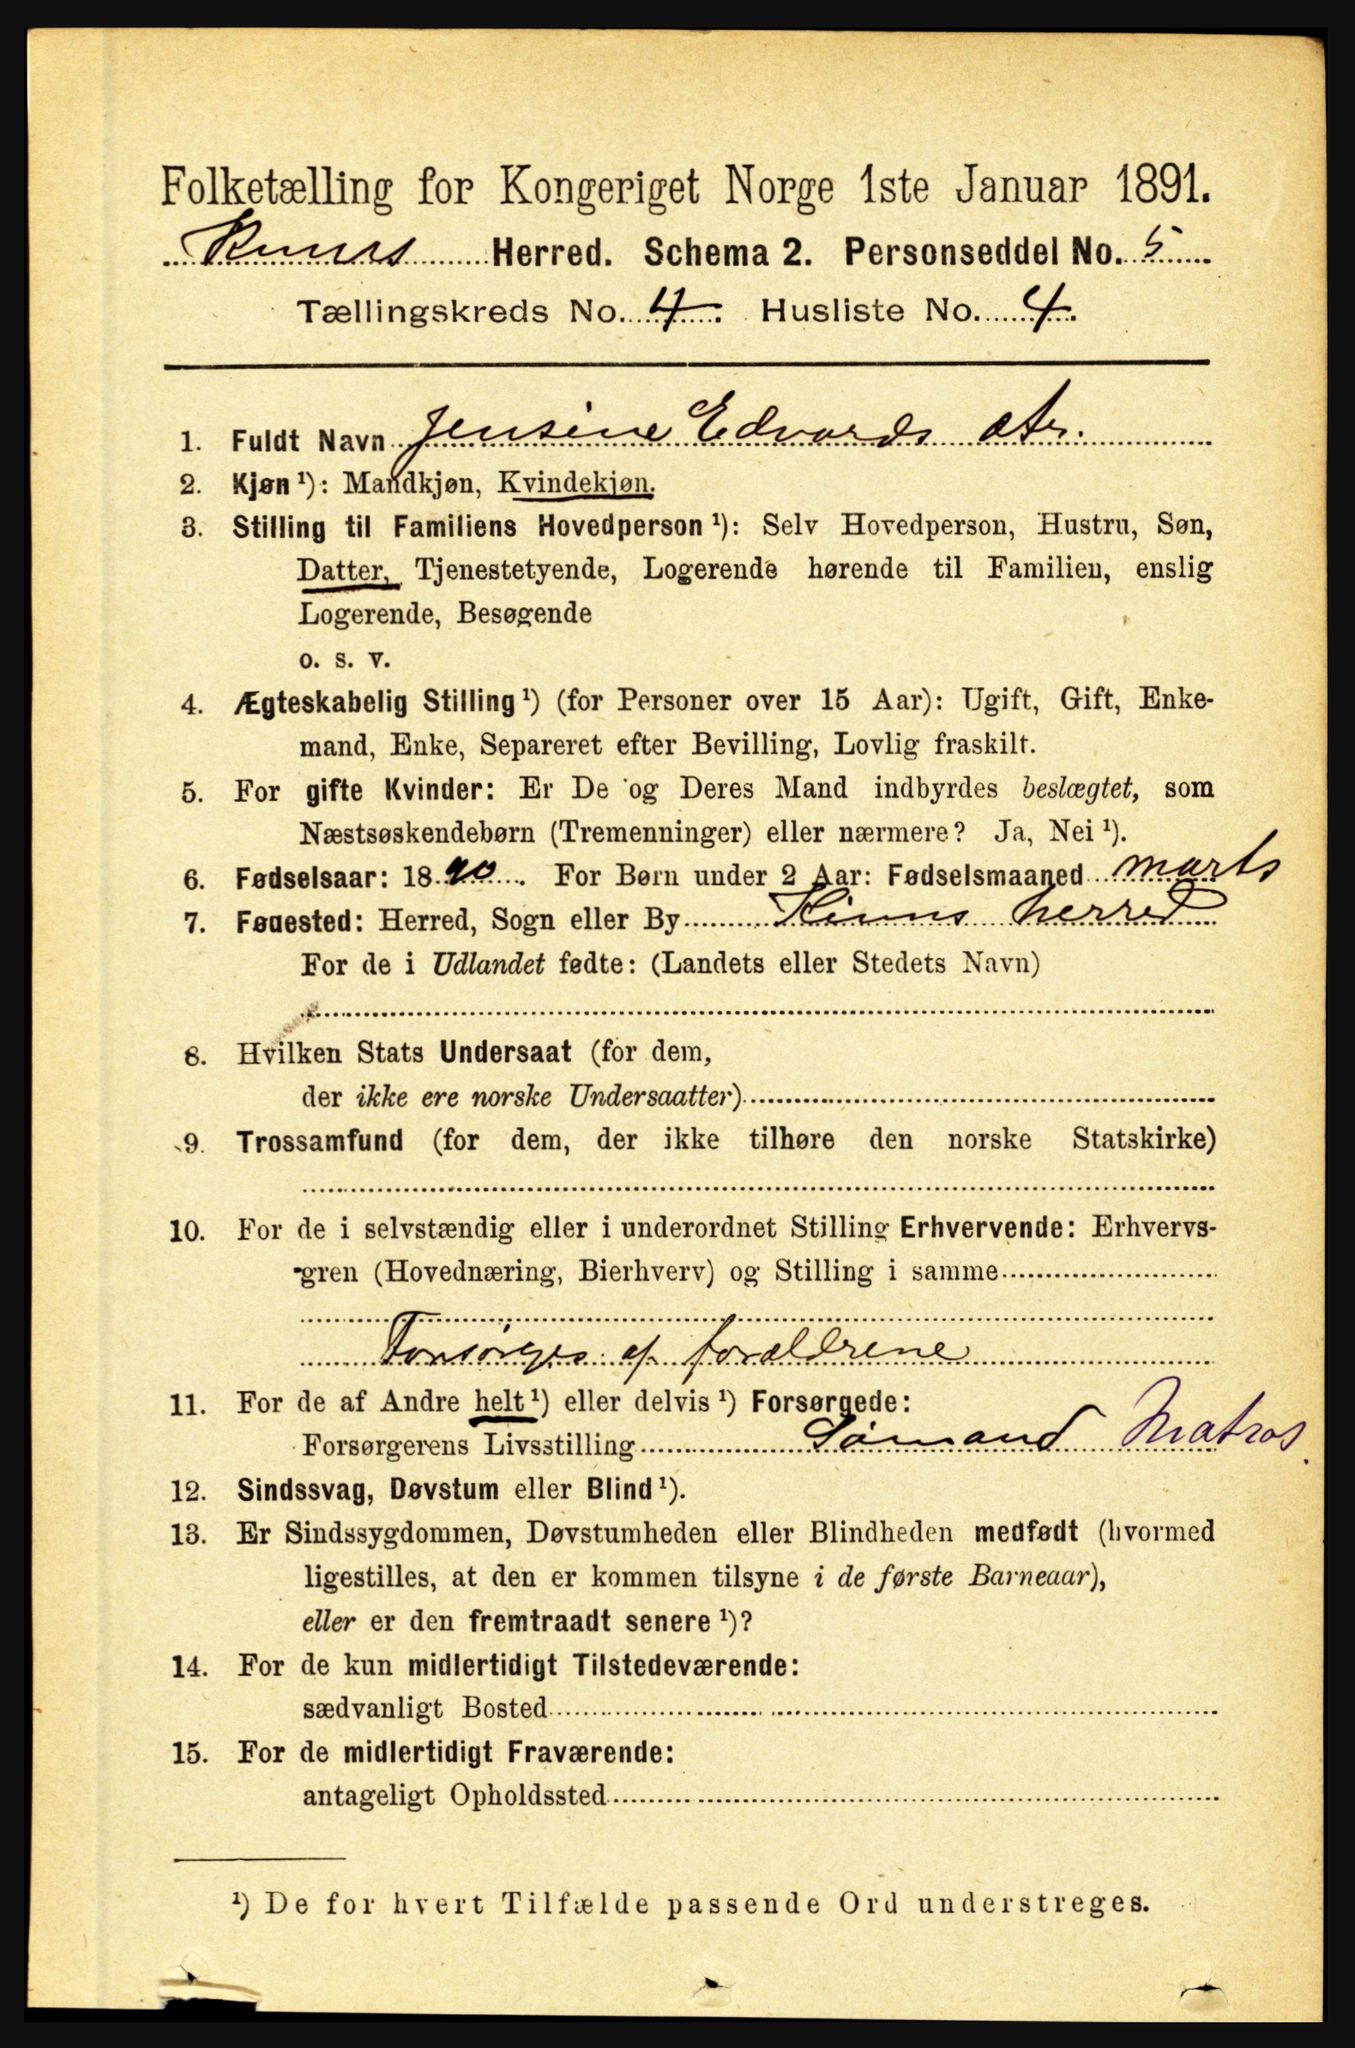 Folketælling for Kongeriget Norge 1ste Januar 1891.
Kinns Herred. Schema 2. Personseddel No. 5
Tællingskreds No. 4. Husliste No. 4.
1. Fuldt Navn Jensine Edvards dtr.
2. Kjøn ¹): Mandkjøn, Kvindekjøn.
3. Stilling til Familiens Hovedperson ¹): Selv Hovedperson, Hustru, Søn,
Datter, Tjenestetyende, Logerende hørende til Familien, enslig
Logerende, Besøgende
o. s. v.
4. Ægteskabelig Stilling ¹) (for Personer over 15 Aar): Ugift, Gift, Enke-
mand, Enke, Separeret efter Bevilling, Lovlig fraskilt.
5. For gifte Kvinder: Er De og Deres Mand indbyrdes beslægtet, som
Næstsøskendebørn (Tremenninger) eller nærmere? Ja, Nei ¹).
6. Fødselsaar: 1890. For Børn under 2 Aar: Fødselsmaaned marts
7. Fødested: Herred, Sogn eller By Kinns herred
For de i Udlandet fødte: (Landets eller Stedets Navn)
8. Hvilken Stats Undersaat (for dem,
der ikke ere norske Undersaatter)
9. Trossamfund (for dem, der ikke tilhøre den norske Statskirke)
10. For de i selvstændig eller i underordnet Stilling Erhvervende: Erhvervs-
gren (Hovednæring, Bierhverv) og Stilling i samme
Forsörges af forældrene
11. For de af Andre helt ¹) eller delvis ¹) Forsørgede:
Forsørgerens Livsstilling Sömand Matros.
12. Sindssvag, Døvstum eller Blind ¹).
13. Er Sindssygdommen, Døvstumheden eller Blindheden medfødt (hvormed
ligestilles, at den er kommen tilsyne i de første Barneaar),
eller er den fremtraadt senere ¹)?
14. For de kun midlertidigt Tilstedeværende:
sædvanligt Bosted
15. For de midlertidigt Fraværende:
antageligt Opholdssted
¹) De for hvert Tilfælde passende Ord understreges.